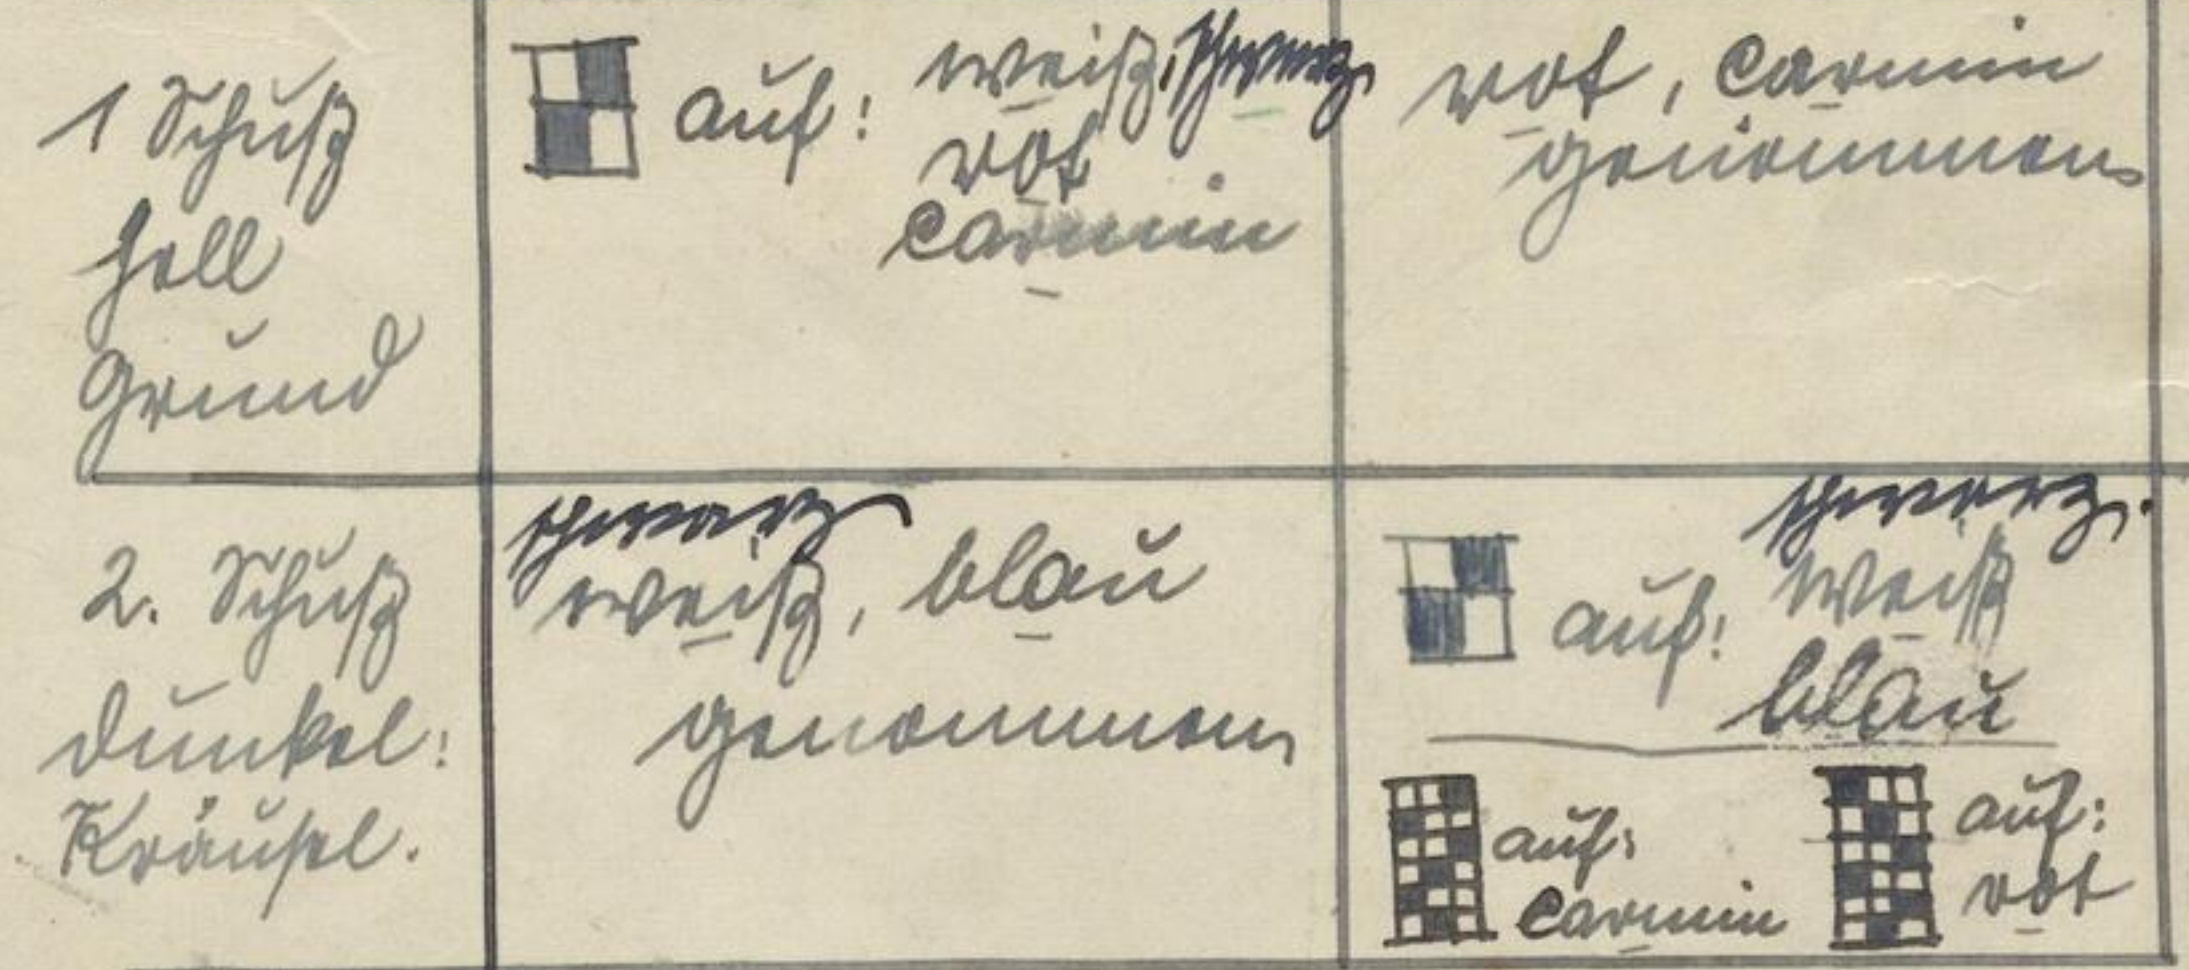 1 Schuß
hell
Grund
auf: weiß, schwarz,
rot
carmin
rot, carmin
genommen
2. Schuß
dunkel:
Kräusel.
schwarz
weiß, blau
genommen
schwarz.
auf: weiß
blau
auf:
carmin
auf:
rot